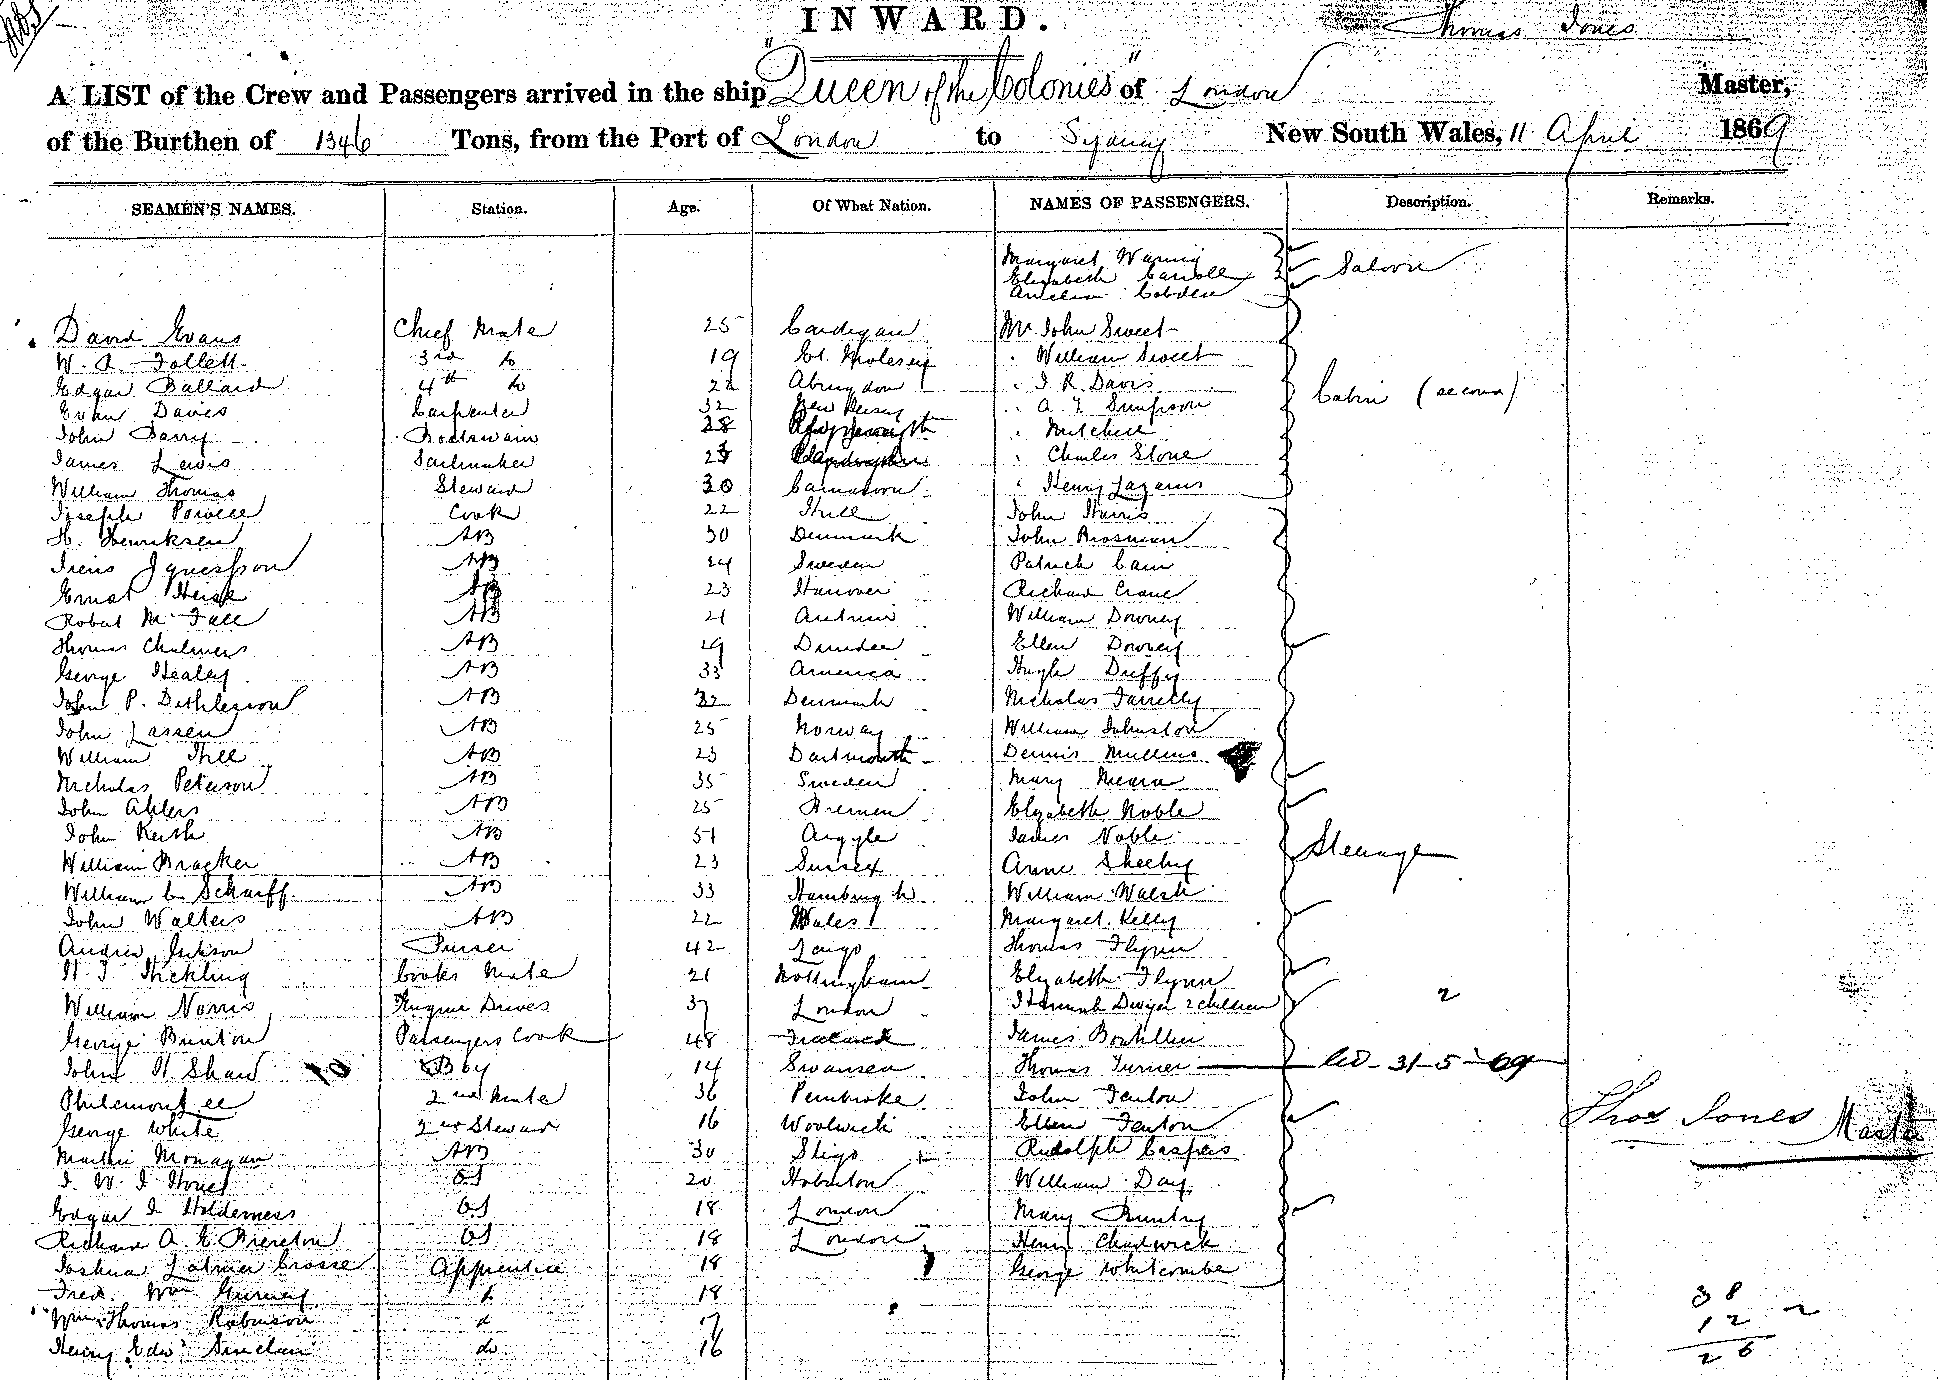 INWARD.
Thomas Jones
A LIST of the Crew and Passengers arrived in the ship "Queen of the Colonies" of London Master,
of the Burthen of 1346 Tons, from the Port of London to Sydney New South Wales, 11 April 1869
SEAMEN'S NAMES. Station. Age. Of What Nation. NAMES OF PASSENGERS. Description. Remarks.
Margaret Waring
Elizabeth Carroll Saloon
Amelia Cobden
David Evans Chief Mate 25 Cardigan Mr John Sweet
W. A. Follett 3rd do 19 Et. Molesey " William Sweet
Edgar Ballard 4th do 22 Abingdon " J. R. Davis Cabin (second)
Evan Davies Carpenter 32 New Jersey " A. Simpson
John Barry Boatswain 28 " Mitchell
James Lewis Sailmaker " Charles Stone
William Thomas Steward 30 Carnarvon " Henry Lazarus
Joseph Powell Cook 22 Hull John Harris
H. Henriksen AB 30 Denmark John Brosnan
AB 24 Sweden Patrick Cain
Ernst AB 23 Hanover Richard Crane
Robert McFall AB 21 Antrim William Downey
Thomas Chalmers AB 29 Dundee Ellen Downey
George Healey AB 33 America Hugh Duffy
John P. AB 32 Denmark Nicholas Farrelly
John Lassen AB 25 Norway William Johnston
William Hill AB 23 Dartmouth Dennis Mullins
Nicholas Peterson AB 35 Sweden Mary Meara
John Ahlers AB 25 Bremen Elizabeth Noble
John Keith AB 51 Argyle James Noble Steerage
William Bracker AB 23 Sussex Anne Sheehy
William C. Scharff AB 33 Hamburgh William Walsh
John Walters AB 22 Wales Margaret Kelly
Andrew Jackson Purser 42 Thomas Flynn
Hickling Cooks Mate 21 Nottingham Elizabeth Flynn
William Norris Engine Driver 37 London Hannah Dwyer 2 children 2
George Bunton Passengers Cook 48 James Boutillier
John H Shaw 10 Boy 14 Swansea Thomas Turner 31-5-69
Philemon Lee 2nd Mate 36 Pembroke John Fenton
George White 2nd Steward 16 Woolwich Ellen Fenton Thos Jones Master
Martin Monagan AB 30 Sligo Rudolph Caspers
OS 20 Hoburton William Day
Edgar J Holderness OS 18 London Mary
Richard A. E. Brereton OS 18 London Henry Chadwick
Joshua Latimer Crosse Apprentice 18 George Whitcombe
Fred. Wm Gurney do 18
Wm Thomas Robinson do 17
Henry Edwd Sinclair do 16
38
12
26